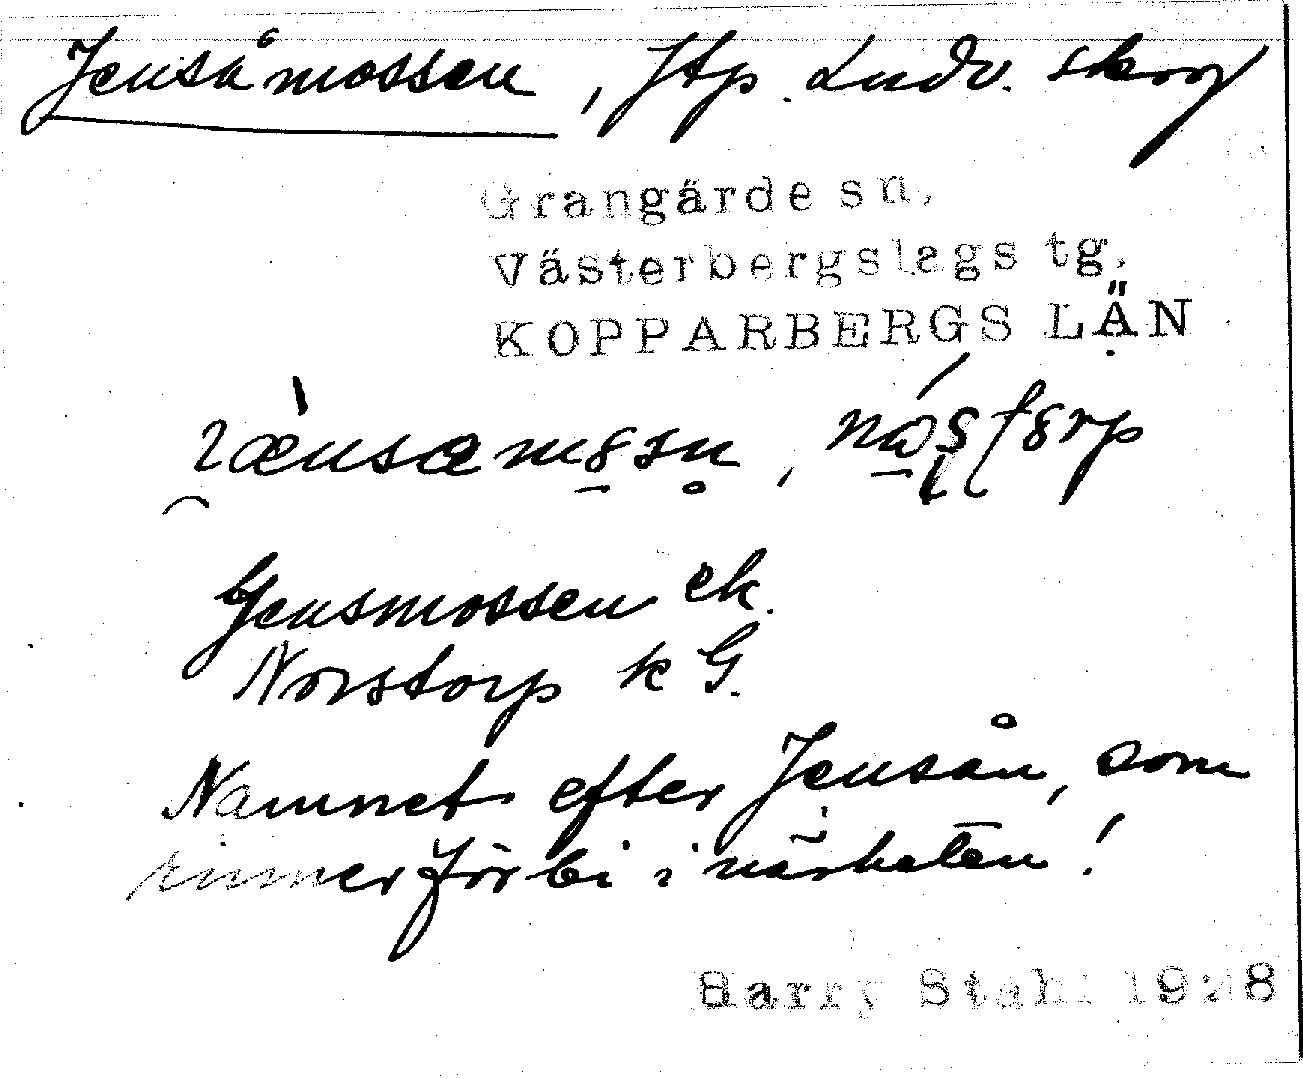 Jensåmossen, ftp. Ludv. skog
Grangärde sn,
Västerbergslags tg.
KOPPARBERGS LÄN
Gensmossen ek.
Norstorp k G.
Namnet efter Jensån, som
rinner förbi i närheten!
Harry Ståhl 1928